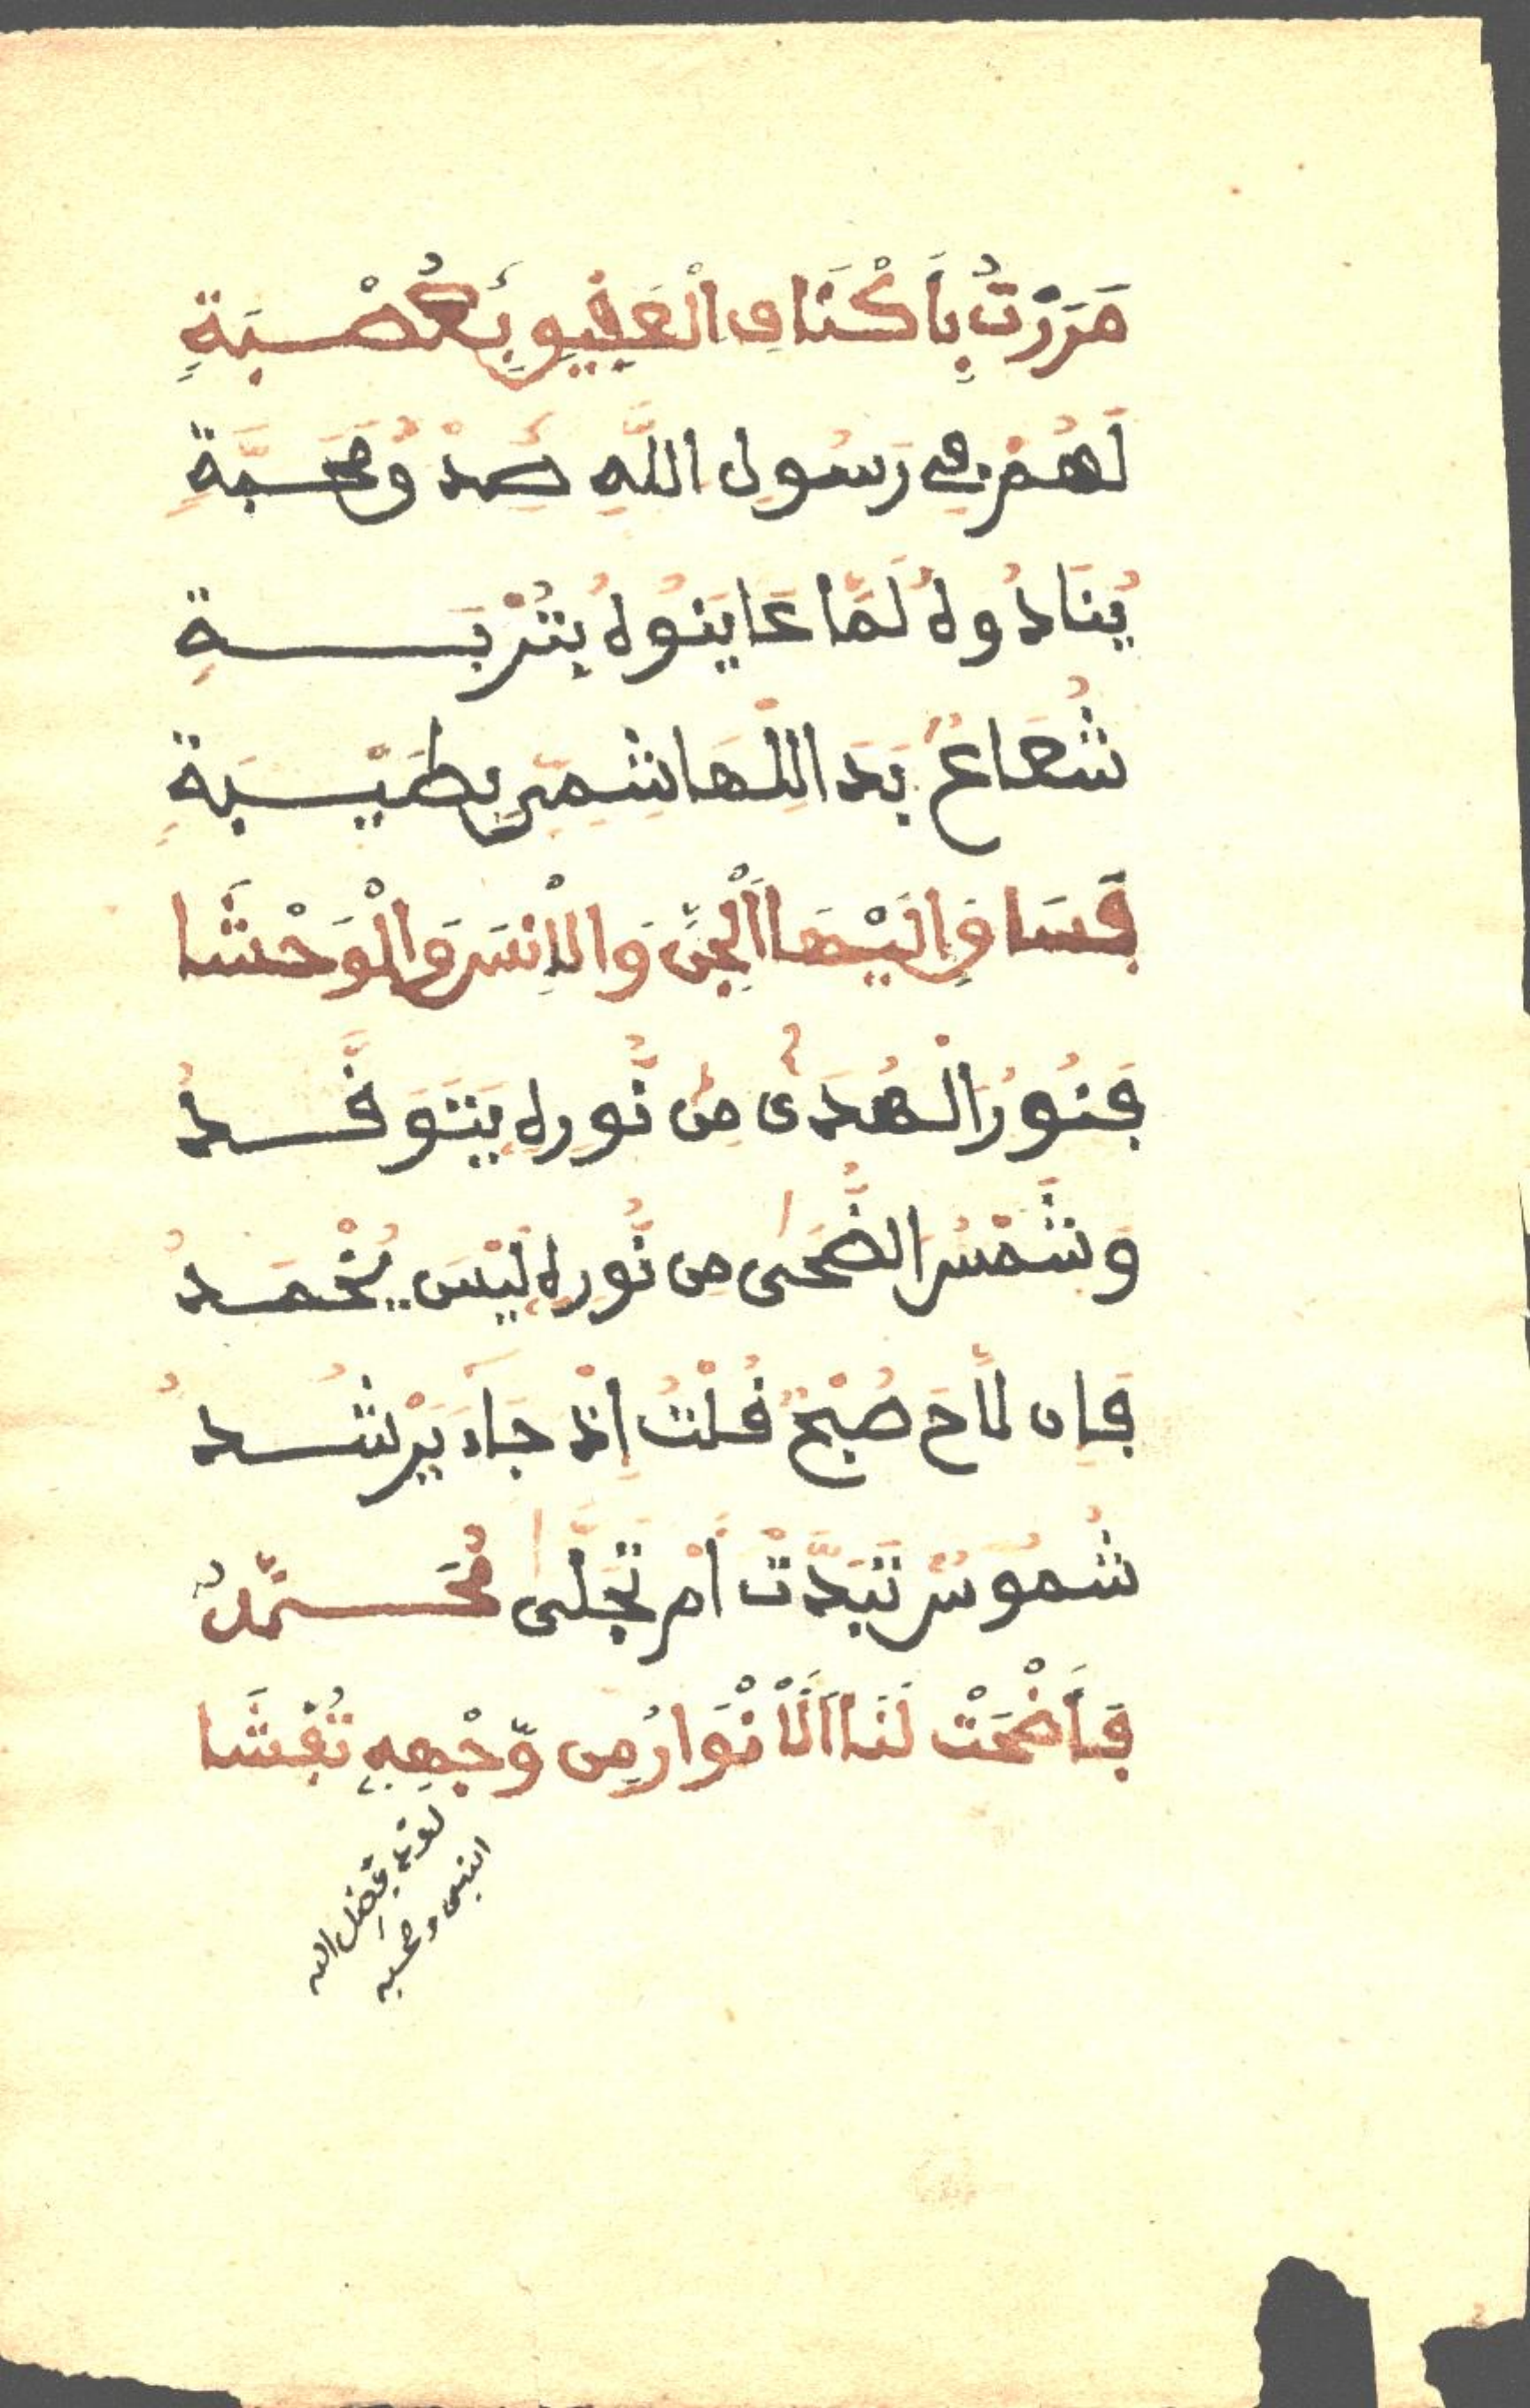 مَرَرْتُ بِأَكْنَافِ الْعَقِيقِ بِعُصْبَةٍ
لَهُمْ فِي رَسُولِ اللَّهِ صِدْقُ مَحَبَّةٍ
يُنَادُوهُ لَمَّا عَايَنُوهُ بِتُرْبَةٍ
شُعَاعٌ بَدَا لِلْهَاشِمِيِّ بِطَيْبَةٍ
فَسَاقَ إِلَيْهَا الْجِنَّ وَالْإِنْسَ وَالْوَحْشَا
فَنُورُ الْهُدَى مِن نُّورِهِ يَتَوَقَّدُ
وَشَمْسُ الضُّحَى مِن نُّورِهِ لَيْسَ يُخْمَدُ
فَإِن لَّاحَ صُبْحٌ قُلْتُ إِذْ جَاءَ يَرْشُدُ
شُمُوسٌ تَبَدَّتْ أَمْ تَجَلَّى مُحَمَّدٌ
فَأَضْحَتْ لَنَا الْأَنْوَارُ مِن وَّجْهِهِ تُغْشَا